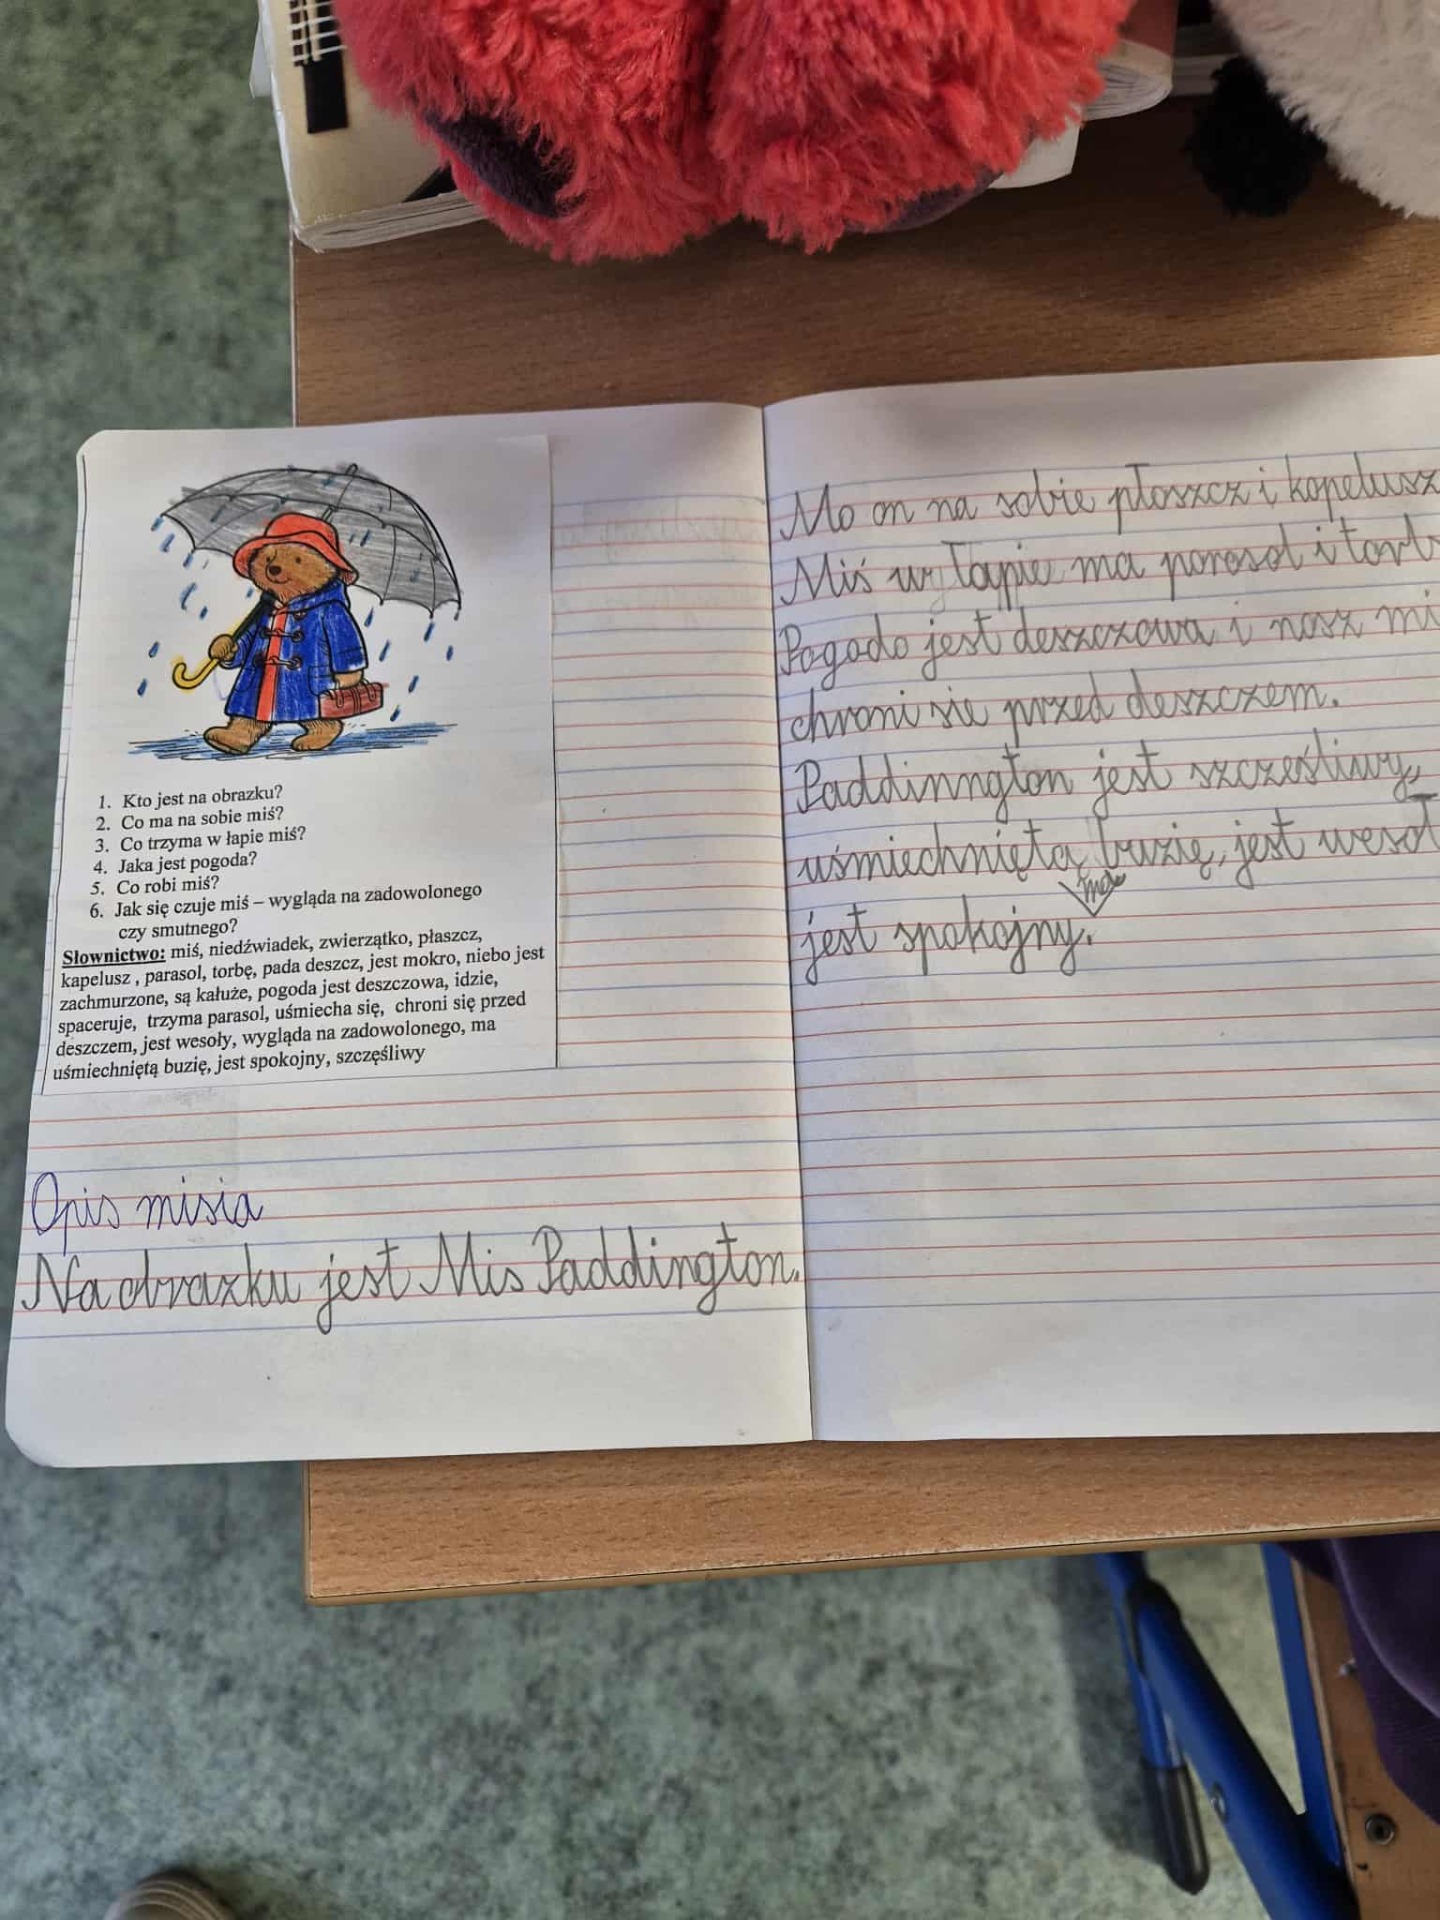 1. Kto jest na obrazku?
2. Co ma na sobie miś?
3. Co trzyma w łapie miś?
4. Jaka jest pogoda?
5. Co robi miś?
6. Jak się czuje miś – wygląda na zadowolonego
czy smutnego?
Słownictwo: miś, niedźwiadek, zwierzątko, płaszcz,
kapelusz , parasol, torbę, pada deszcz, jest mokro, niebo jest
zachmurzone, są kałuże, pogoda jest deszczowa, idzie,
spaceruje, trzyma parasol, uśmiecha się, chroni się przed
deszczem, jest wesoły, wygląda na zadowolonego, ma
uśmiechniętą buzię, jest spokojny, szczęśliwy
Opis misia
Na obrazku jest Mis Paddington.
Ma on na sobie płaszcz i kapelusz
Miś w łapie ma parasol i
Pogoda jest deszczowa i nasz
chroni sie przed deszczem.
Paddinngton jest szcześliwy,
uśmiechniętą buzię, jest
ma
jest spokojny.